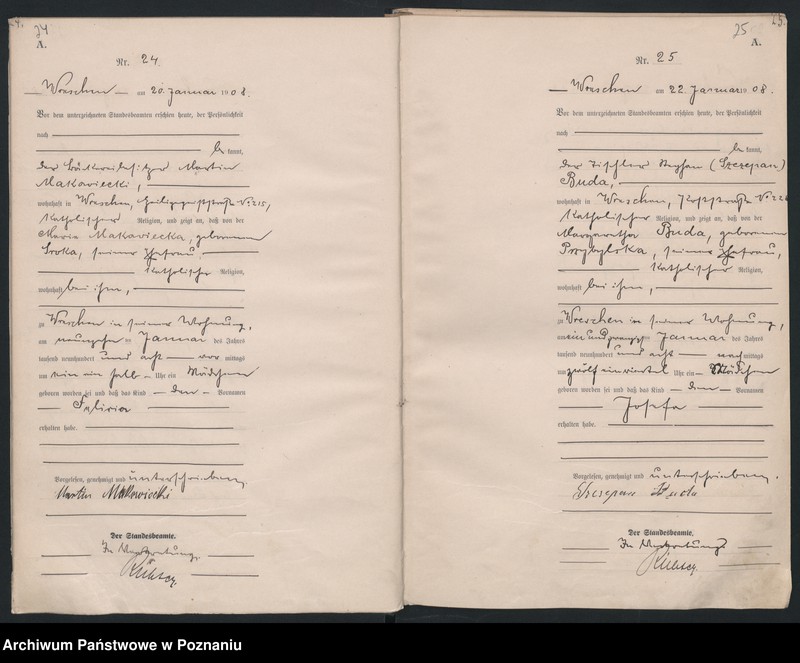 24
A.
Nr. 24
Wreschen am 20. Januar 1908.
Vor dem unterzeichneten Standesbeamten erschien heute, der Persönlichkeit
nach
be kannt,
der Martin
Makowiecki,
wohnhaft in Wreschen, Heiligegeiststraße No 215,
katholischer Religion, und zeigt an, daß von der
Maria Makowiecka, geborenen
Sroka, seiner Ehefrau,
katholischer Religion,
wohnhaft bei ihm,
zu Wreschen in seiner Wohnung,
am neunzehn ten Januar des Jahres
tausend neunhundert und acht vor mittags
um ein halb Uhr ein Mädchen
geboren worden sei und daß das Kind den Vornamen
Felicia
erhalten habe.
Vorgelesen, genehmigt und unterschrieben.
Martin Makowiecki
Der Standesbeamte.
In Vertretung.
25
A.
Nr. 25
Wreschen am 22. Januar 1908.
Vor dem unterzeichneten Standesbeamten erschien heute, der Persönlichkeit
nach
be kannt,
der Tischler Stephan (Szczepan)
Buda,
wohnhaft in Wreschen, No
katholischer Religion, und zeigt an, daß von der
Margaretha Buda, geborenen
Przybylska, seiner Ehefrau,
katholischer Religion,
wohnhaft bei ihm,
zu Wreschen in seiner Wohnung,
am einundzwanzigsten Januar des Jahres
tausend neunhundert und acht nach mittags
um zwölf einviertel Uhr ein Mädchen
geboren worden sei und daß das Kind den Vornamen
Josefa
erhalten habe.
Vorgelesen, genehmigt und unterschrieben.
Szczepan Buda
Der Standesbeamte.
In Vertretung
Archiwum Państwowe w Poznaniu